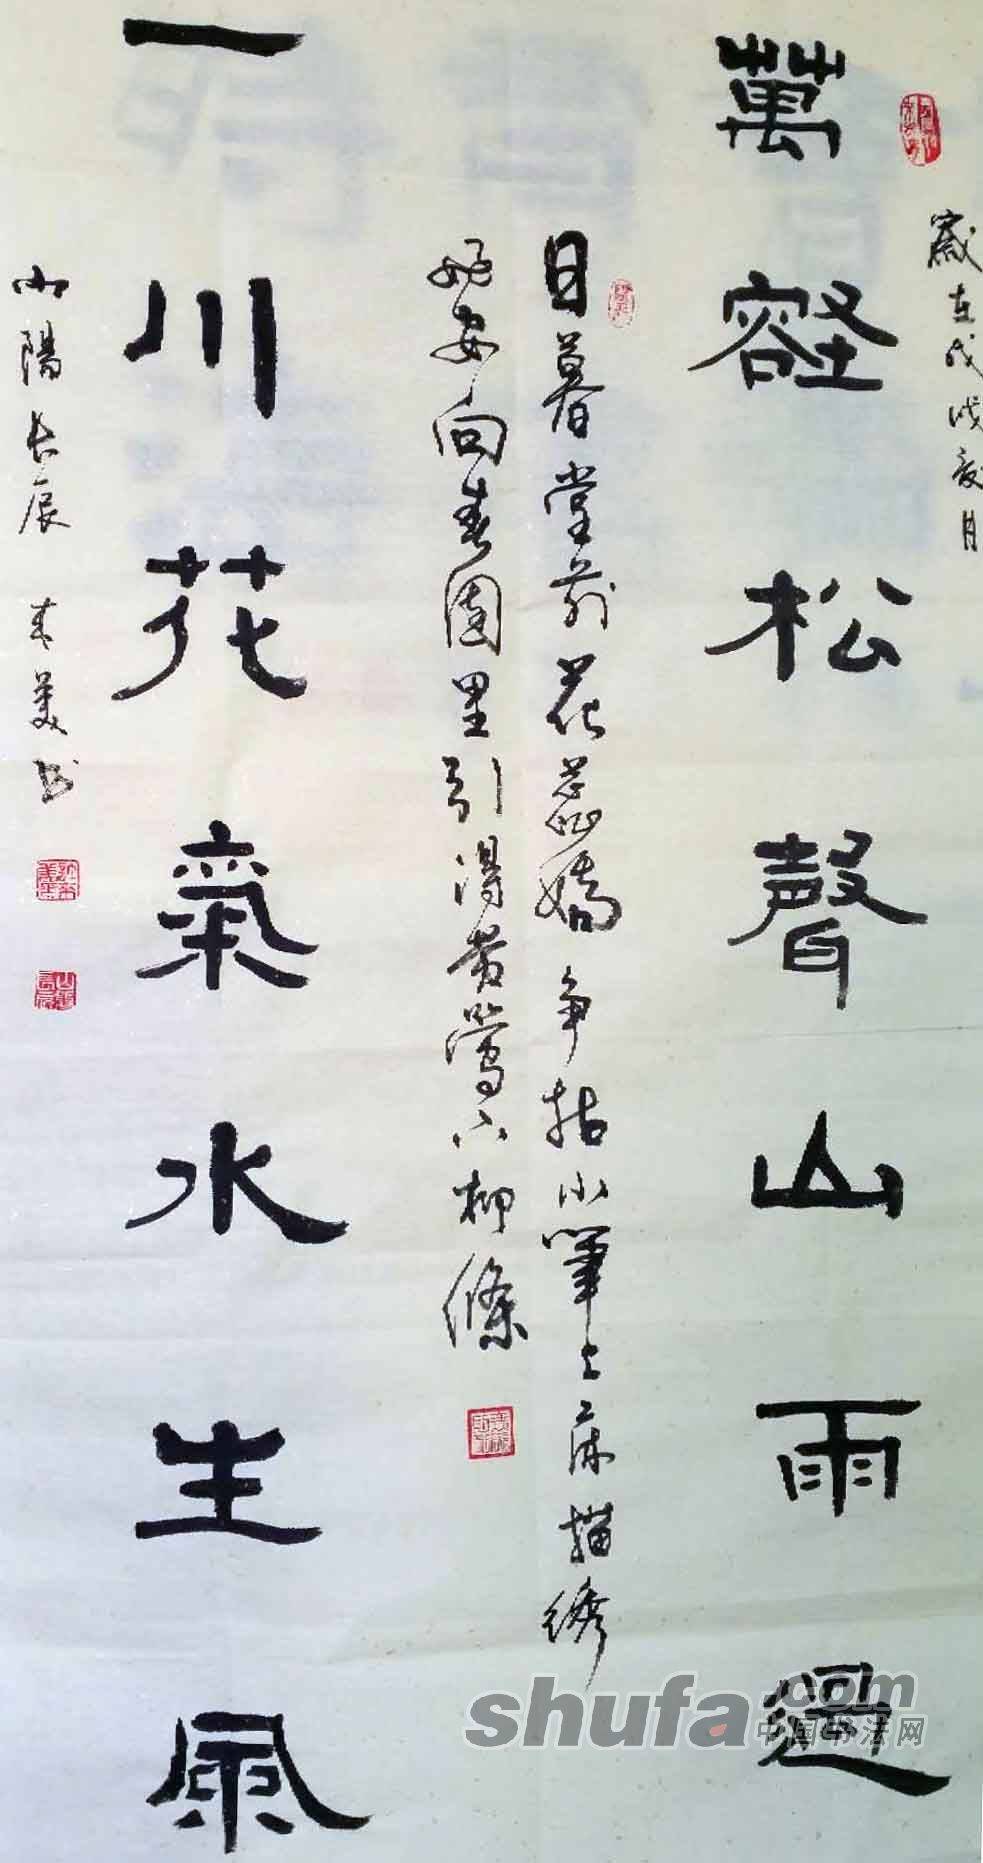 歲在戊戌夏月
萬壑松聲山雨過
日暮堂前花蕊嬌争拈小筆上床描绣
成安向春园里引得黄莺下柳條
一川花氣水生風
山陽长辰 春美书
shufa.com
中国书法网